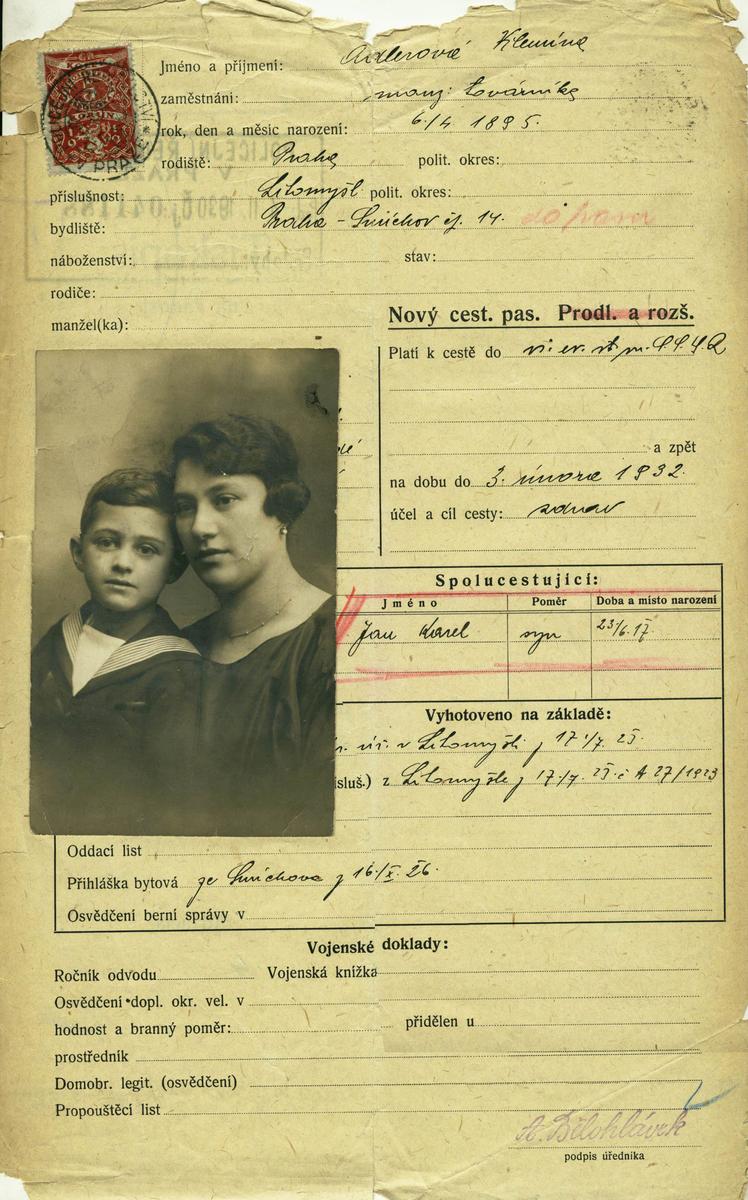 Jméno a příjmení: Adlerová Klemína
zaměstnání: manž. továrníka
rok, den a měsíc narození: 6/4 1895.
rodiště: Praha polit. okres:
příslušnost: Litomyšl polit. okres:
bydliště: Praha - Smíchov čp. 14.
náboženství: stav:
rodiče:
manžel(ka):
Nový cest. pas. Prodl. a rozš.
Platí k cestě do
a zpět
na dobu do 3. února 1932.
účel a cíl cesty:
Spolucestující:
Jméno Poměr Doba a místo narození
Jan Karel syn 23/6.17.
Vyhotoveno na základě:
v Litomyšli z 17./7. 23.
ísluš.) z Litomyšle z 17./7. 23. č A 27/1923
Oddací list
Přihláška bytová ze Smíchova z 16./X. 26.
Osvědčení berní správy v
Vojenské doklady:
Ročník odvodu Vojenská knížka
Osvědčení dopl. okr. vel. v
hodnost a branný poměr: přidělen u
prostředník
Domobr. legit. (osvědčení)
Propouštěcí list
A. Bělohlávek
podpis úředníka